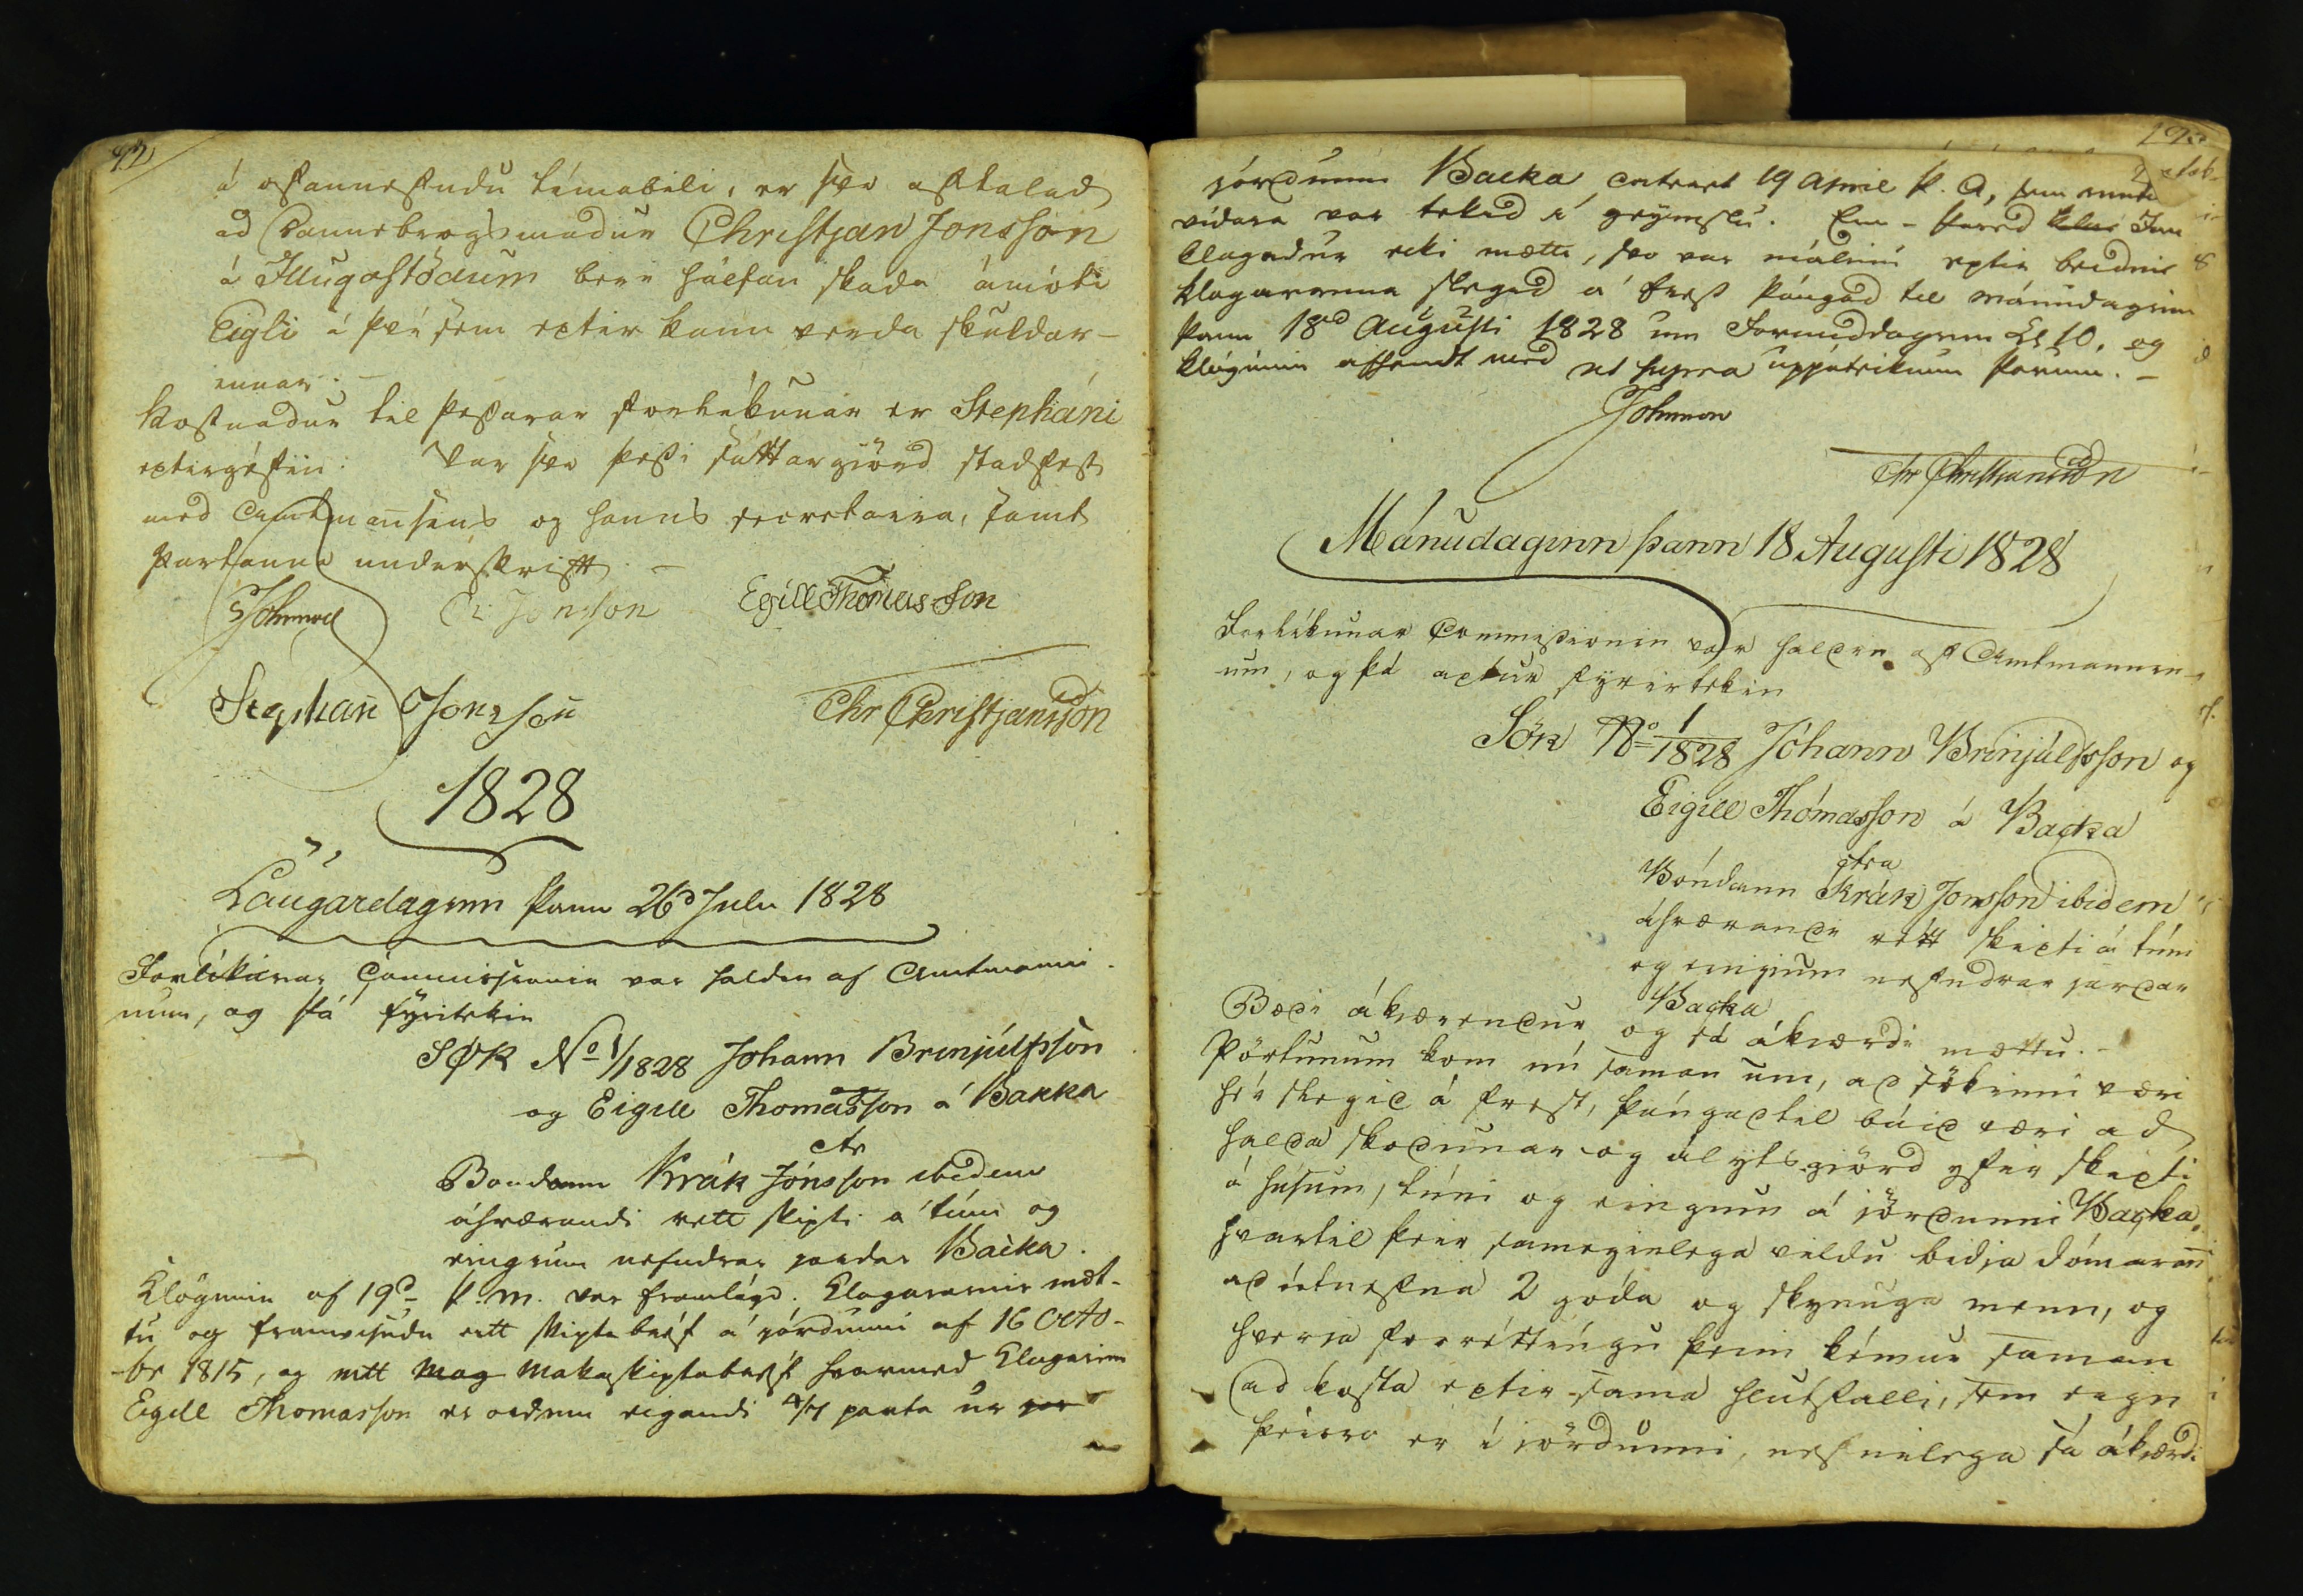 92
á ofannefndu tímabili, er svo aftalad
ad Dannebrogsmadur Christjan Jonsson
á Illugastödum beri hálfan skada ámóti
Eigli í því sem eptir kann verda skuldar-
innar. -
Kostnadur til þessarar forlíkunar er Stepháni
eptirgéfin. Var svo þessi sáttargiörd stadfest
med Amtmansins og hanns secretaira, samt
partanna underskrift. -
Johnsson Ch Jonsson Egill Thomas Son
Stephan Jonsson Chr Christjansson
1828
Laugardaginn þann 26d Julii 1828
Forlíkunar Commissionin var haldin af Amtmanni
num, og þá fyritekin
SØK No 1/1828 Johann Brinjúlfsson
og Eigill Thomasson á Bakka
ctr
Bondann Krák Jónsson ibidem
áhrærandi rett skipti á túni og
eingium nefndrar jardar Backa.
Klögunin af 19d þ. m. var framlögd. Klagararnir mæt-
tu og framvísudu eitt skiptabréf á jördunni af 16 Octo-
br 1815, og eitt Mag Makaskiptabréf hvarmed Klagarinn
Eigill Thomasson er ordinn eigandi 4/7 parta ur jör
jördunni Backa contract 19 April þ. A, sem
vidara var tekid í geymslu. En - þared Inn
klagadur ecki mætti, svo var málinu eptir beidni
klagaranna slegid á frest þángad til mánudaginn
þann 18d Augusti 1828 um Formiddaginn Kl 10, og
klögunin afhendt med ut supra uppáteiknun þarum. -
Johnsson
Chr Christjansson
Mánudaginn þann 18 Augusti 1828
Forlíkunar Commissionin var haldin af Amtmannin-
um, og þá aptur fyrirtekin
Sök No 1/1828 Jóhann Brinjúlfsson og
Eigill Thómasson á Backa
ctra
Bóndann Krák Jonsson ibidem
áhrærandi rétt skipti á túni
og eingium nefndrar jardar
Backa
Bædi ákærendur og sá ákærdi mættu. -
Pörtunum kom nú saman um, ad sökinni væri
hér slegid á frest, þángadtil búid væri ad
halda skodunar og álytsgiörd yfir skipti
á húsum, túni og eingium á jördunni Backa,
hvartil þeir sameginlega vildu bidja dómarann
ad útnefna 2 góda og skynuga menn, og
hverja forréttíngu þeim kémur saman
ad kosta eptir sama hlutfalli, sem eign
þeirra er í jördunni, nefnilega sá ákærdi